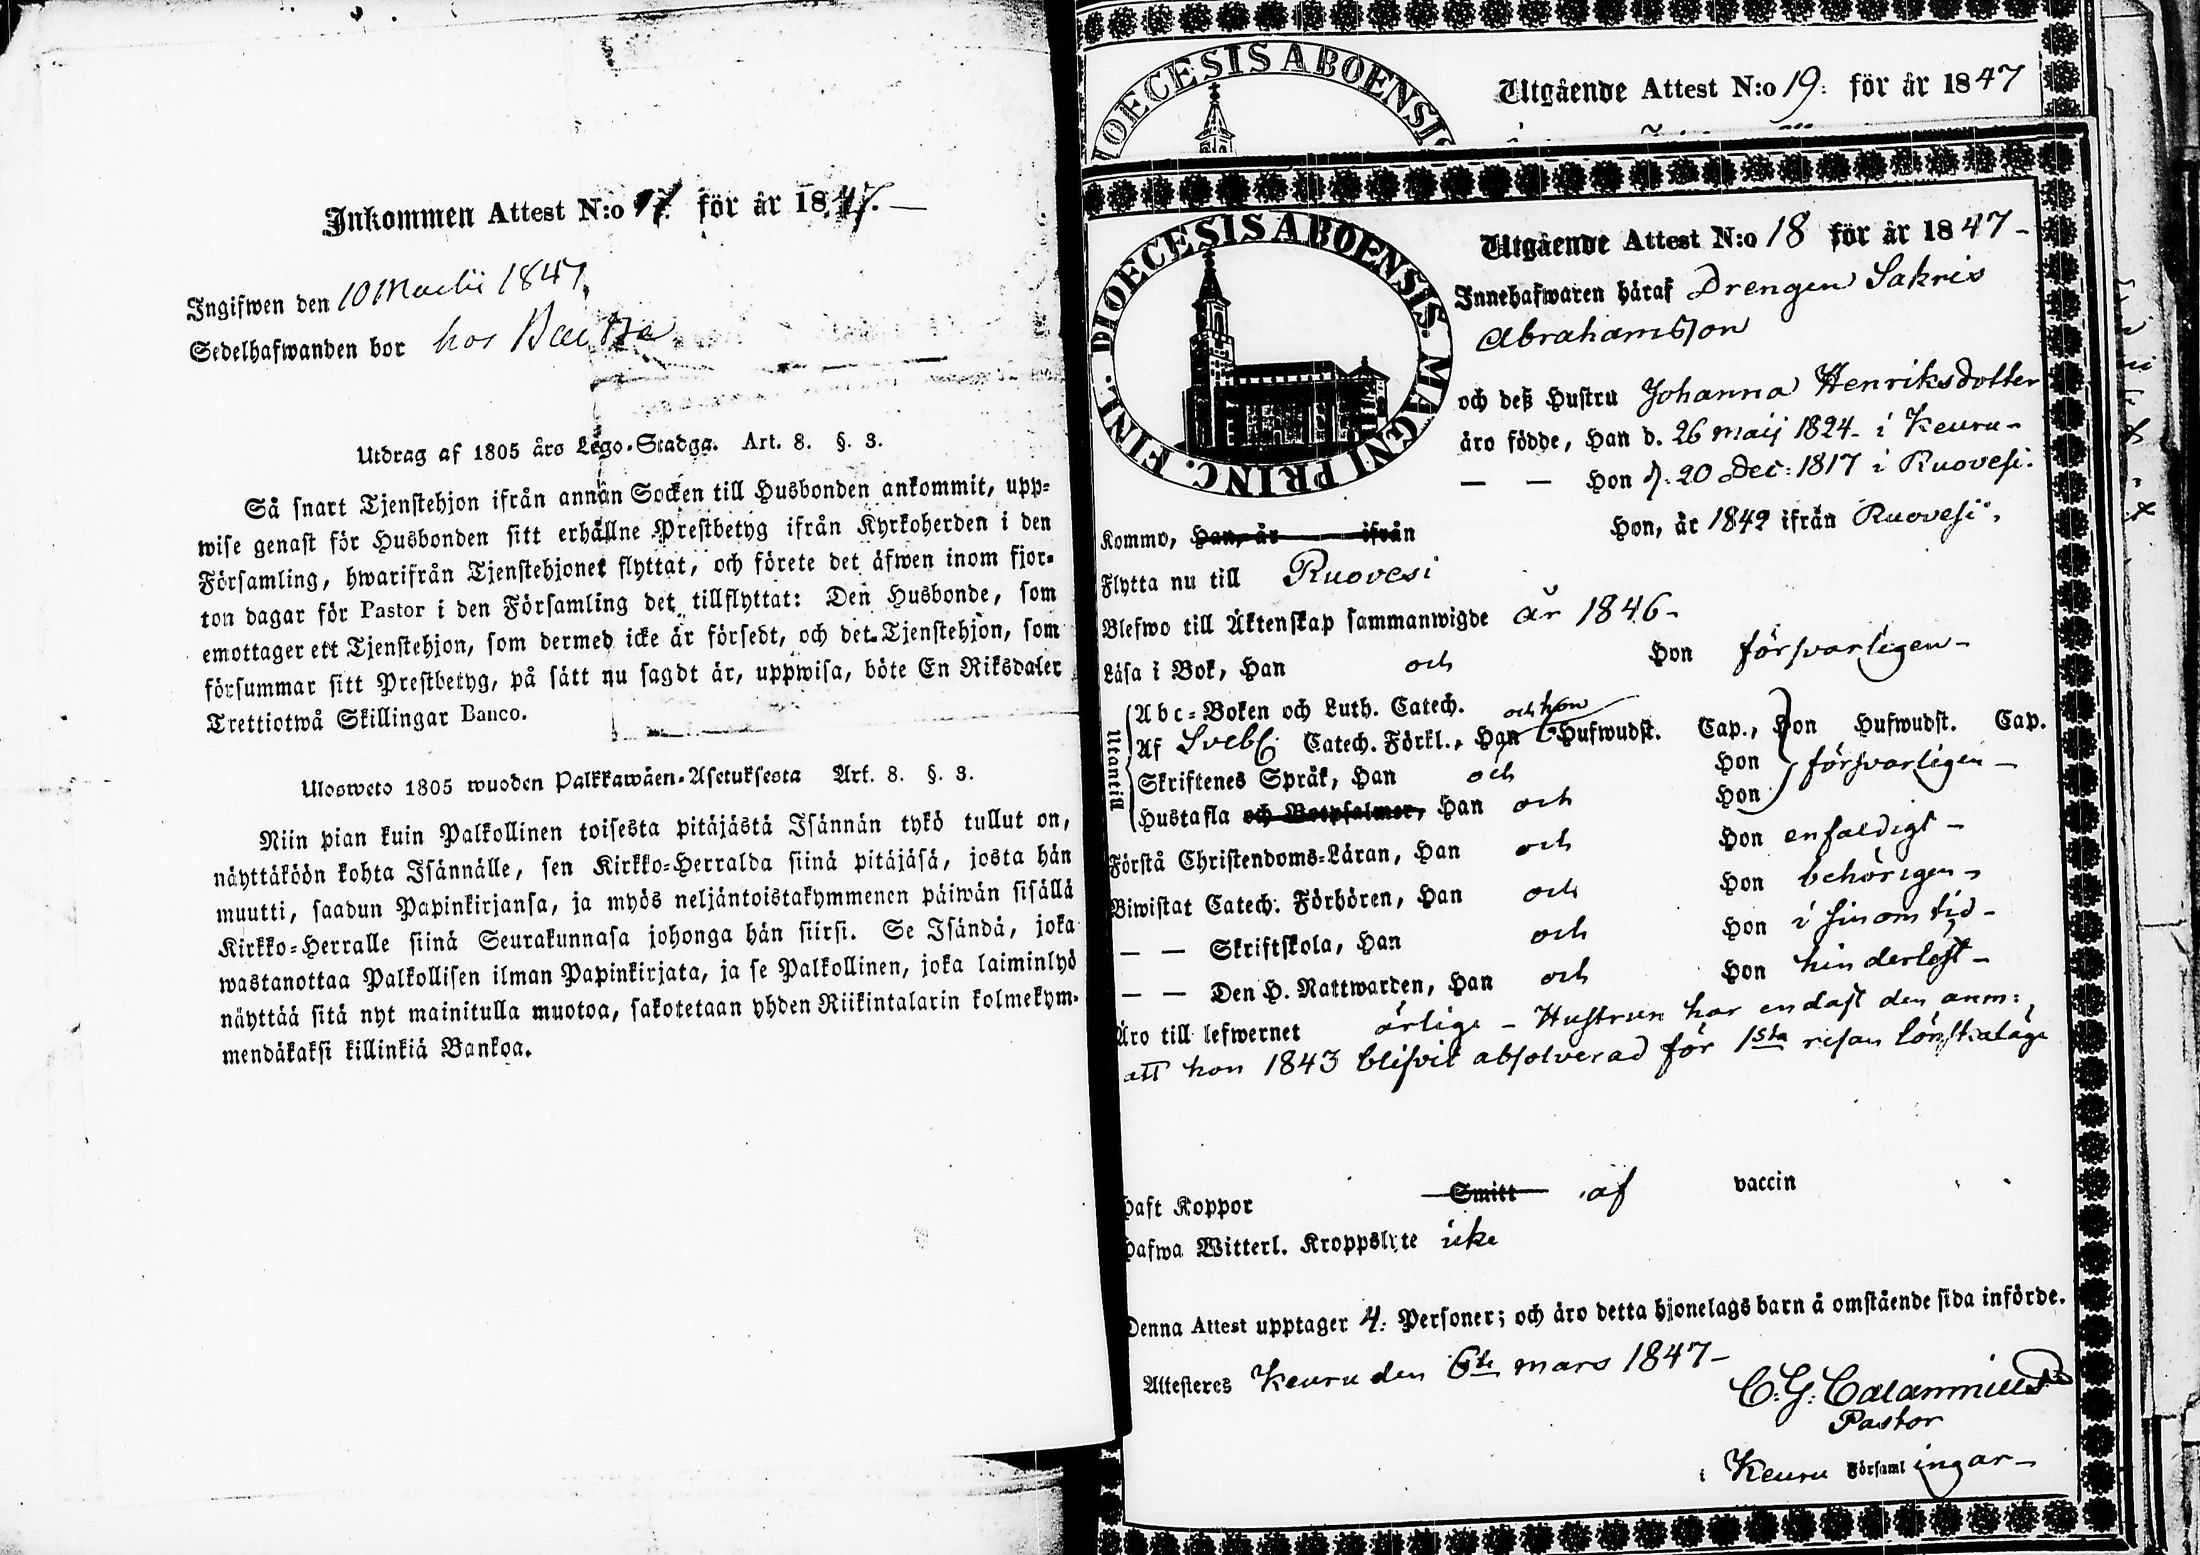 Inkommen Attest N:o 17. för år 1847.
Ingifwen den 10 Martii 1847.
Sedelhafwanden bor hos
Utdrag af 1805 års Lego-Stadga. Art. 8. §. 3.
Så snart Tjenstehjon ifrån annan Socken till Husbonden ankommit, upp-
wise genast för Husbonden sitt erhållne Prestbetyg ifrån Kyrkoherden i den
Församling, hwarifrån Tjenstehjonet flyttat, och förete det äfwen inom fjor-
ton dagar för Pastor i den Församling det tillflyttat: Den Husbonde, som
emottager ett Tjenstehjon, som dermed icke är försedt, och det Tjenstehjon, som
försummar sitt Prestbetyg, på sätt nu sagdt är, uppwisa, böte En Riksdaler
Trettiotwå Skillingar Banco.
Ulosweto 1805 wuoden Palkkawäen-Asetuksesta Art. 8. §. 3.
Niin pian kuin Palkollinen toisesta pitäjästä Isännän tykö tullut on,
näyttäköön kohta Isännälle, sen Kirkko-Herralda siinä pitäjäsä, josta hän
muutti, saadun Papinkirjansa, ja myös neljäntoistakymmenen päiwän sisällä
Kirkko-Herralle siinä Seurakunnasa johonga hän siirsi. Se Isändä, joka
wastanottaa Palkollisen ilman Papinkirjata, ja se Palkollinen, joka laiminlyö
näyttää sitä nyt mainitulla muotoa, sakotetaan yhden Riikintalarin kolmekym-
mendäkaksi killinkiä Bankoa.
DIOECESIS ABOENSIS
Utgående Attest N:o 19. för år 1847
DIOECESIS ABOENSIS. MAGNI PRINC. FINL.
Utgående Attest N:o 18 för år 1847-
Innehafwaren häraf Drengen Sakris
Abrahamsson
och deß Hustru Johanna Henriksdotter
äro födde, Han d. 26 Maij 1824- i Keuru-
— — Hon d. 20 Dec: 1817 i Ruovesi.
Kommo, Han, år ifrån Hon, år 1842 ifrån Ruovesi.
Flytta nu till Ruovesi
Blefwo till Äktenskap sammanwigde år 1846-
Läsa i Bok, Han och Hon försvarligen-
Utantill
Abc-Boken och Luth. Catech. och hon
Af Svebl: Catech. Förkl., Han Hufwudst. Cap., Hon Hufwudst. Cap.
Skriftenes Språk, Han och Hon försvarligen-
Hustafla och Botpsalmer, Han och Hon
Förstå Christendoms-Läran, Han och Hon enfaldigt-
Biwistat Catech. Förhören, Han och Hon behörigen-
— — Skriftskola, Han och Hon i sinom tid-
— — Den H. Nattwarden, Han och Hon hinderlöst-
Äro till lefwernet ärlige - Hustrun har endast den anm:
att hon 1843 blifvit absolverad för 1sta resan lönskaläge
Haft Koppor Smitt af vaccin
Hafwa Witterl. Kroppslyte icke
Denna Attest upptager 4. Personer; och äro detta hjonelags barn å omstående sida införde.
Attesteres Keuru den 6te Mars 1847-
C. G. Calamnius
Pastor
i Keuru Församlingar-